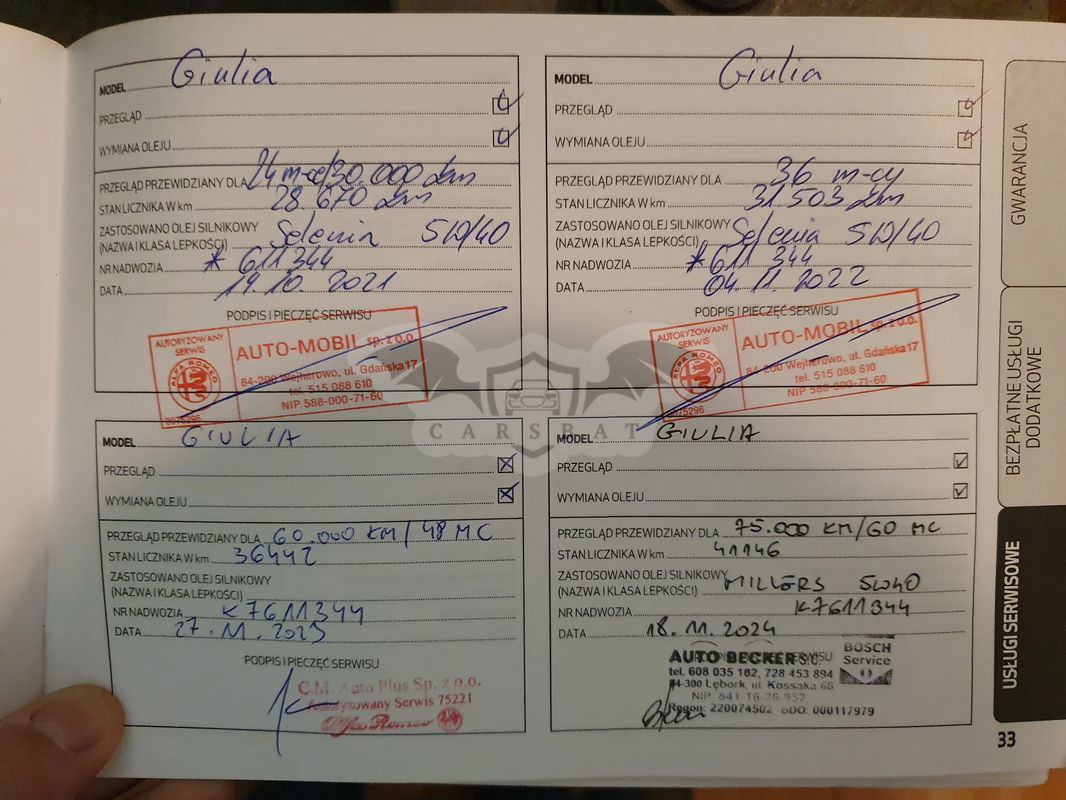 MODEL Giulia
PRZEGLĄD
WYMIANA OLEJU
PRZEGLĄD PRZEWIDZIANY DLA 24 m-ce/30.000 km
STAN LICZNIKA W km 28 670 km
ZASTOSOWANO OLEJ SILNIKOWY
(NAZWA I KLASA LEPKOŚCI) Selenia 5W/40
NR NADWOZIA * 611 344
DATA 19.10. 2021
PODPIS I PIECZĘĆ SERWISU
AUTORYZOWANY
SERWIS
ALFA ROMEO
0075296
AUTO-MOBIL sp. z o.o.
84-200 Wejherowo, ul. Gdańska 17
tel. 515 088 610
NIP 588-000-71-60
MODEL Giulia
PRZEGLĄD
WYMIANA OLEJU
PRZEGLĄD PRZEWIDZIANY DLA 36 m-cy
STAN LICZNIKA W km 31 503 km
ZASTOSOWANO OLEJ SILNIKOWY
(NAZWA I KLASA LEPKOŚCI) Selenia 5W/40
NR NADWOZIA * 611 344
DATA 04.11.2022
PODPIS I PIECZĘĆ SERWISU
AUTORYZOWANY
SERWIS
ALFA ROMEO
0075296
AUTO-MOBIL sp. z o.o.
84-200 Wejherowo, ul. Gdańska 17
tel. 515 088 610
NIP 588-000-71-60
CARSBAT
MODEL GIULIA
PRZEGLĄD
WYMIANA OLEJU
PRZEGLĄD PRZEWIDZIANY DLA 60.000 KM / 48 MC
STAN LICZNIKA W km 36442
ZASTOSOWANO OLEJ SILNIKOWY
(NAZWA I KLASA LEPKOŚCI)
NR NADWOZIA K7611344
DATA 27.11.2023
PODPIS I PIECZĘĆ SERWISU
C.M. Auto Plus Sp. z o.o.
Autoryzowany Serwis 75221
Alfa Romeo
MODEL GIULIA
PRZEGLĄD
WYMIANA OLEJU
PRZEGLĄD PRZEWIDZIANY DLA 75.000 KM/60 MC
STAN LICZNIKA W km 41146
ZASTOSOWANO OLEJ SILNIKOWY
(NAZWA I KLASA LEPKOŚCI) MILLERS 5W40
NR NADWOZIA K7611344
DATA 18.11.2024
PODPIS I PIECZĘĆ SERWISU
AUTO BECKER S.C.
tel. 608 035 182, 728 453 894
84-300 Lębork, ul. Kossaka 66
NIP: 841-16-26-952,
Regon: 220074502 BDO: 000117979
BOSCH
Service
GWARANCJA
BEZPŁATNE USŁUGI
DODATKOWE
USŁUGI SERWISOWE
33